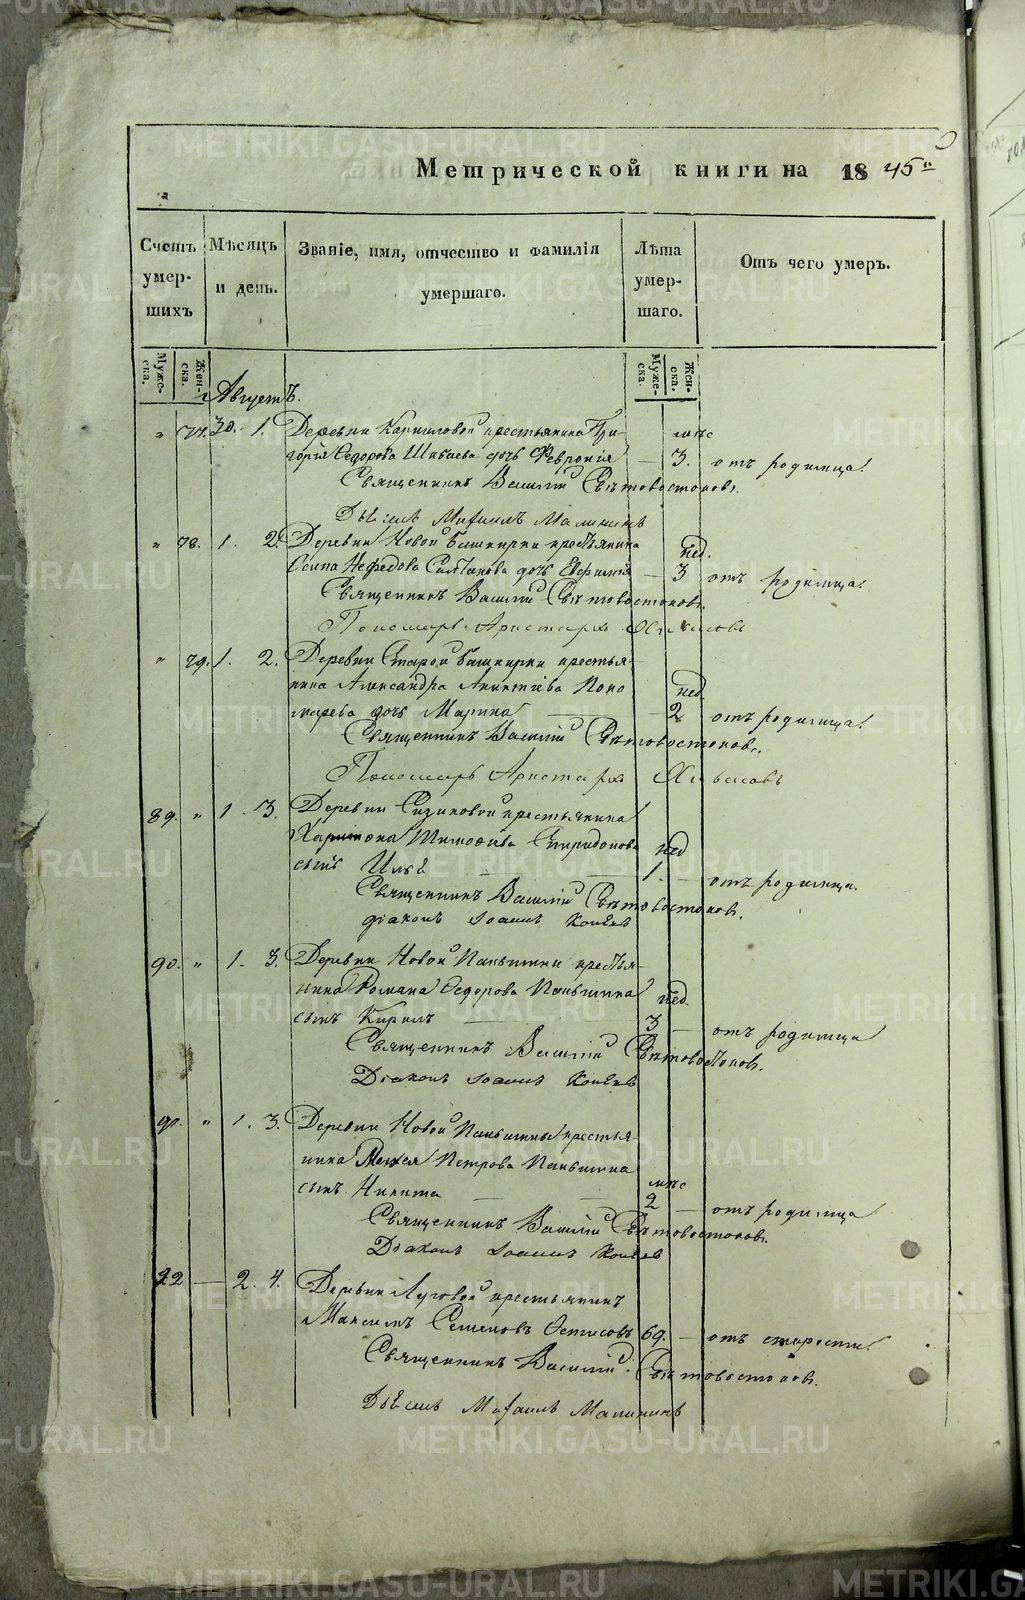 Метрической книги на 1845й
Счетъ умер-шихъ
Мѣсяцъ и день.
Званіе, имя, отчество и фамилія умершаго.
Лѣта умер-шаго.
Отъ чего умеръ.
Муже-ска.
Жен-ска.
Муже-ска.
Жен-ска.
Августъ.
" 77. 30. 1. Деревни Корниловой крестьянина Гри-
горія Ѳедорова Шибаева дочь Февронія — мѣс 3. отъ родимца.
Священникъ Василій Свѣтовостоковъ.
Дьячекъ Михаилъ Малининъ
" 78. 1. 2. Деревни Новой Башкирки крестьянина
Осипа Нефедова Салтанова дочь Евфимія — нед. 3 отъ родимца.
Священникъ Василій Свѣтовостоковъ.
Пономарь Аристархъ
" 79. 1. 2. Деревни Старой Башкирки крестья-
нина Александра Поно
марева дочь Марина — нед. 2 отъ родимца.
Священникъ Василій Свѣтовостоковъ.
Пономарь Аристархъ
89. " 1. 3. Деревни Сизиковой крестьянина
Харитона Тимоѳеева Спиридонова
сынъ Илья нед 1. — отъ родимца.
Священникъ Василій Свѣтовостоковъ.
діаконъ Іоаннъ Коневъ
90. " 1. 3. Деревни Новой Паньшины крестья-
нина Романа Ѳедорова Паньшина
сынъ Кирилъ — нед. 3 — отъ родимца
Священникъ Василій Свѣтовостоковъ.
Діаконъ Іоаннъ Коневъ
90. " 1. 3. Деревни Новой Паньшины крестья-
нина Петрова Паньшина
сынъ Никита — мѣс 2 — отъ родимца
Священникъ Василій Свѣтовостоковъ.
Діаконъ Іоаннъ Коневъ
92 — 2. 4. Деревни Луговой крестьянинъ
Максимъ Семеновъ 69. — отъ старости.
Священникъ Василій Свѣтовостоковъ.
Дьячекъ Михаилъ Малининъ
METRIKI.GASO-URAL.RU